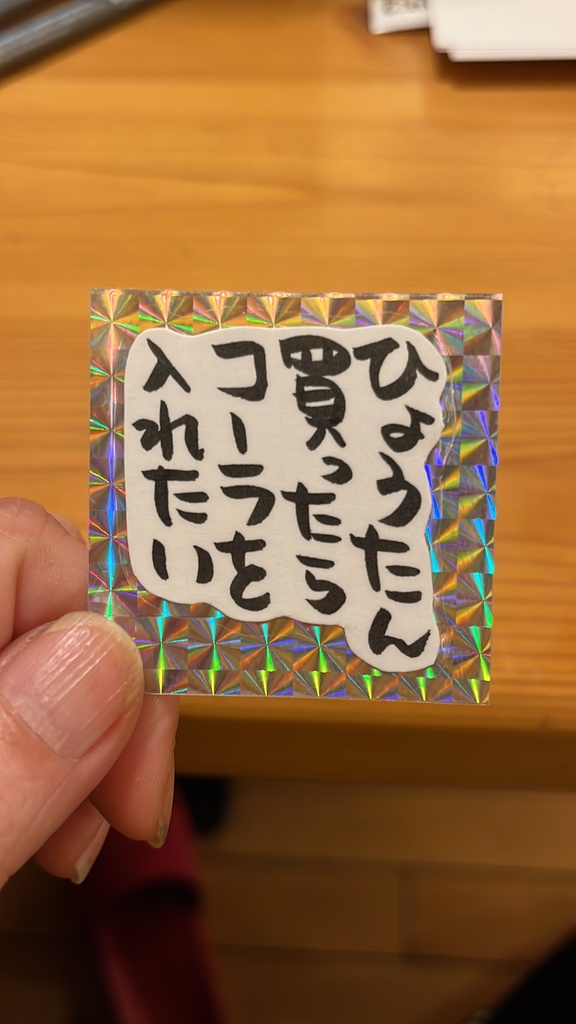 ひょうたん
買ったら
コーラを
入れたい